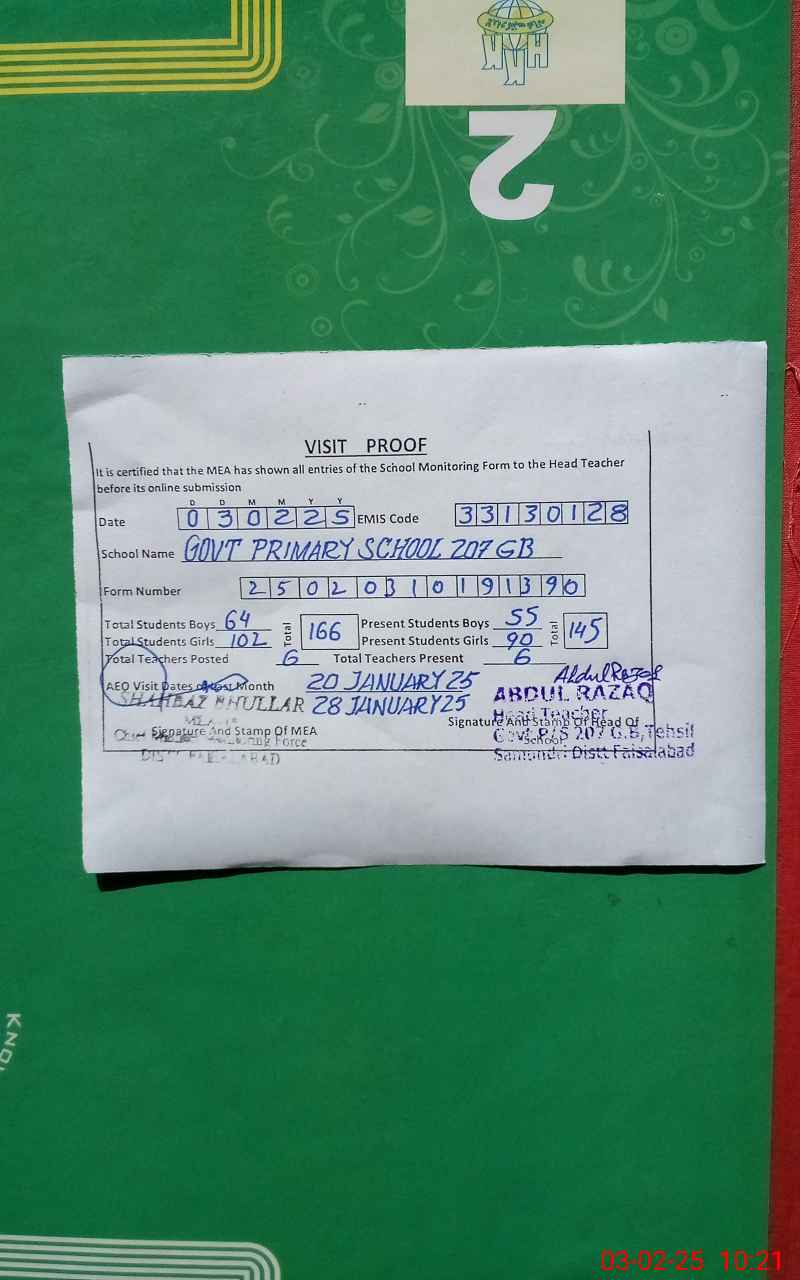 2
VISIT PROOF
It is certified that the MEA has shown all entries of the School Monitoring Form to the Head Teacher
before its online submission
D D M M Y Y
Date 030225 EMIS Code 33130128
School Name GOVT PRIMARY SCHOOL 207 GB
Form Number 25020310191390
Total Students Boys 64 Total 166 Present Students Boys 55 Total 145
Total Students Girls 102 Present Students Girls 90
Total Teachers Posted 6 Total Teachers Present 6
AEO Visit Dates Month 20 JANUARY 25
28 JANUARY 25
SHAHBAZ BHULLAR
MEA
Signature And Stamp Of MEA
Monitoring Force
DISTT FAISALABAD
Abdul Razaq
ABDUL RAZAQ
Head Teacher
Signature And Stamp Of Head Of
School
Govt P/S 207 G.B, Tehsil
Samundri Distt Faisalabad
KNO
03-02-25 10:21